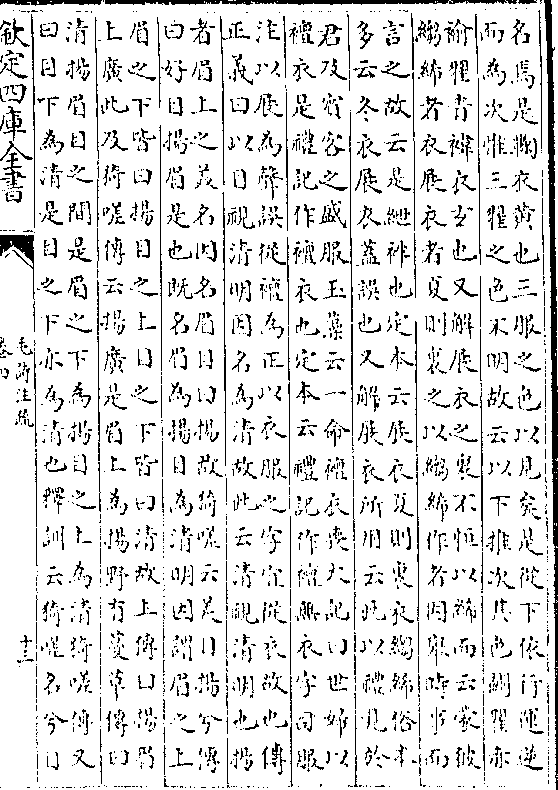 名馬是鞠衣黄也三服之色以見矣是從下依行運逆
而為次惟三翟之色不明故云以下推次其色闕翟赤
揄翟青褘衣𤣥也又解展衣之裏不恒以絺而云蒙彼
縐絺者衣展衣者夏則裏之以縐絺作者因舉時事而
言之故云是紲袢也定本云展衣夏則裏衣縐絺俗本
多云冬衣展衣蓋誤也又解展衣所用云此以禮見於
君及賓客之盛服玉藻云一命襢衣喪大記曰世婦以
襢衣是禮記作襢衣也定本云禮記作襢無衣字司服
注以展為聲誤從襢為正以衣服之字宜從衣故也傳
正義曰以目視清明因名為清故此云清視清明也揚
者眉上之美名因名眉目曰揚故猗嗟云美目揚兮傳
曰好目揚眉是也既名眉為揚目為清明因謂眉之上
眉之下皆曰揚目之上目之下皆曰清故上傳曰揚眉
上廣此及猗嗟傳云揚廣是眉上為揚野有蔓草傳曰
清揚眉目之間是眉之下為揚目之上為清猗嗟傳又
曰目下為清是目之下亦為清也釋訓云猗嗟名兮目
欽定四庫全書
毛詩注疏
卷四
十三